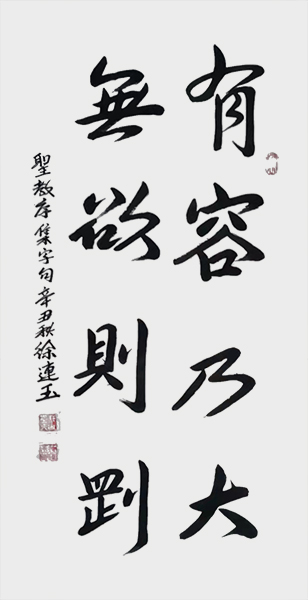 有容乃大
無欲則剛
聖教序集字句辛丑秋徐連玉